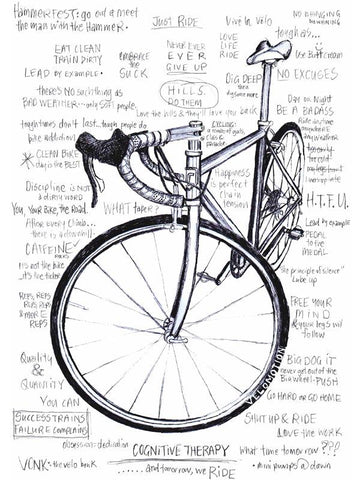 HAMMERFEST: go out & meet
the man with the HAMMER.
JUST RIDE
Vive la Vélo
NO BRINGING
tough as...
EAT CLEAN
TRAIN DIRTY
EMBRACE
the
SUCK
NEVER EVER
EVER
GIVE UP
LOVE
LIFE
RIDE
Use Buttcream
LEAD by EXAMPLE
DIG DEEP
then
dig some more
NO EXCUSES
there's NO such thing as
BAD WEATHER — only soft people
HILLS.
DO THEM
Love the hills & they'll love you back
Day or Night
BE A BADASS
Ride anytime
anywhere
any weather
tough times don't last... tough people do
bike addiction
CLEAN BIKE
day is the BEST
CYCLING:
Happiness
is perfect
chain
tension
Discipline is NOT
a dirty word
You, Your Bike, the Road.
WHAT taper?
H.T.F.U.
Lead by example
After every climb...
there is a downhill
PEDAL
to the
MEDAL
CAFFEINE
It's not the bike
...it's the ticker
the principle of silence
Lube up
REPS, REPS
REPS, REPS
& more
REPS
FREE YOUR
MIND
& your legs will
follow
Quality
&
QUANTITY
BIG DOG IT
never get out of the
Big wheel - PUSH
VELOMOTION
YOU CAN
GO HARD OR GO HOME
SUCCESS TRAINS
FAILURE COMPLAINS
SHUT UP & RIDE
LOVE the WORK
obsession: dedication
COGNITIVE THERAPY
what time tomorrow???
VONK • the velo bonk
......and tomorrow, we RIDE
• mini pumps @ dawn